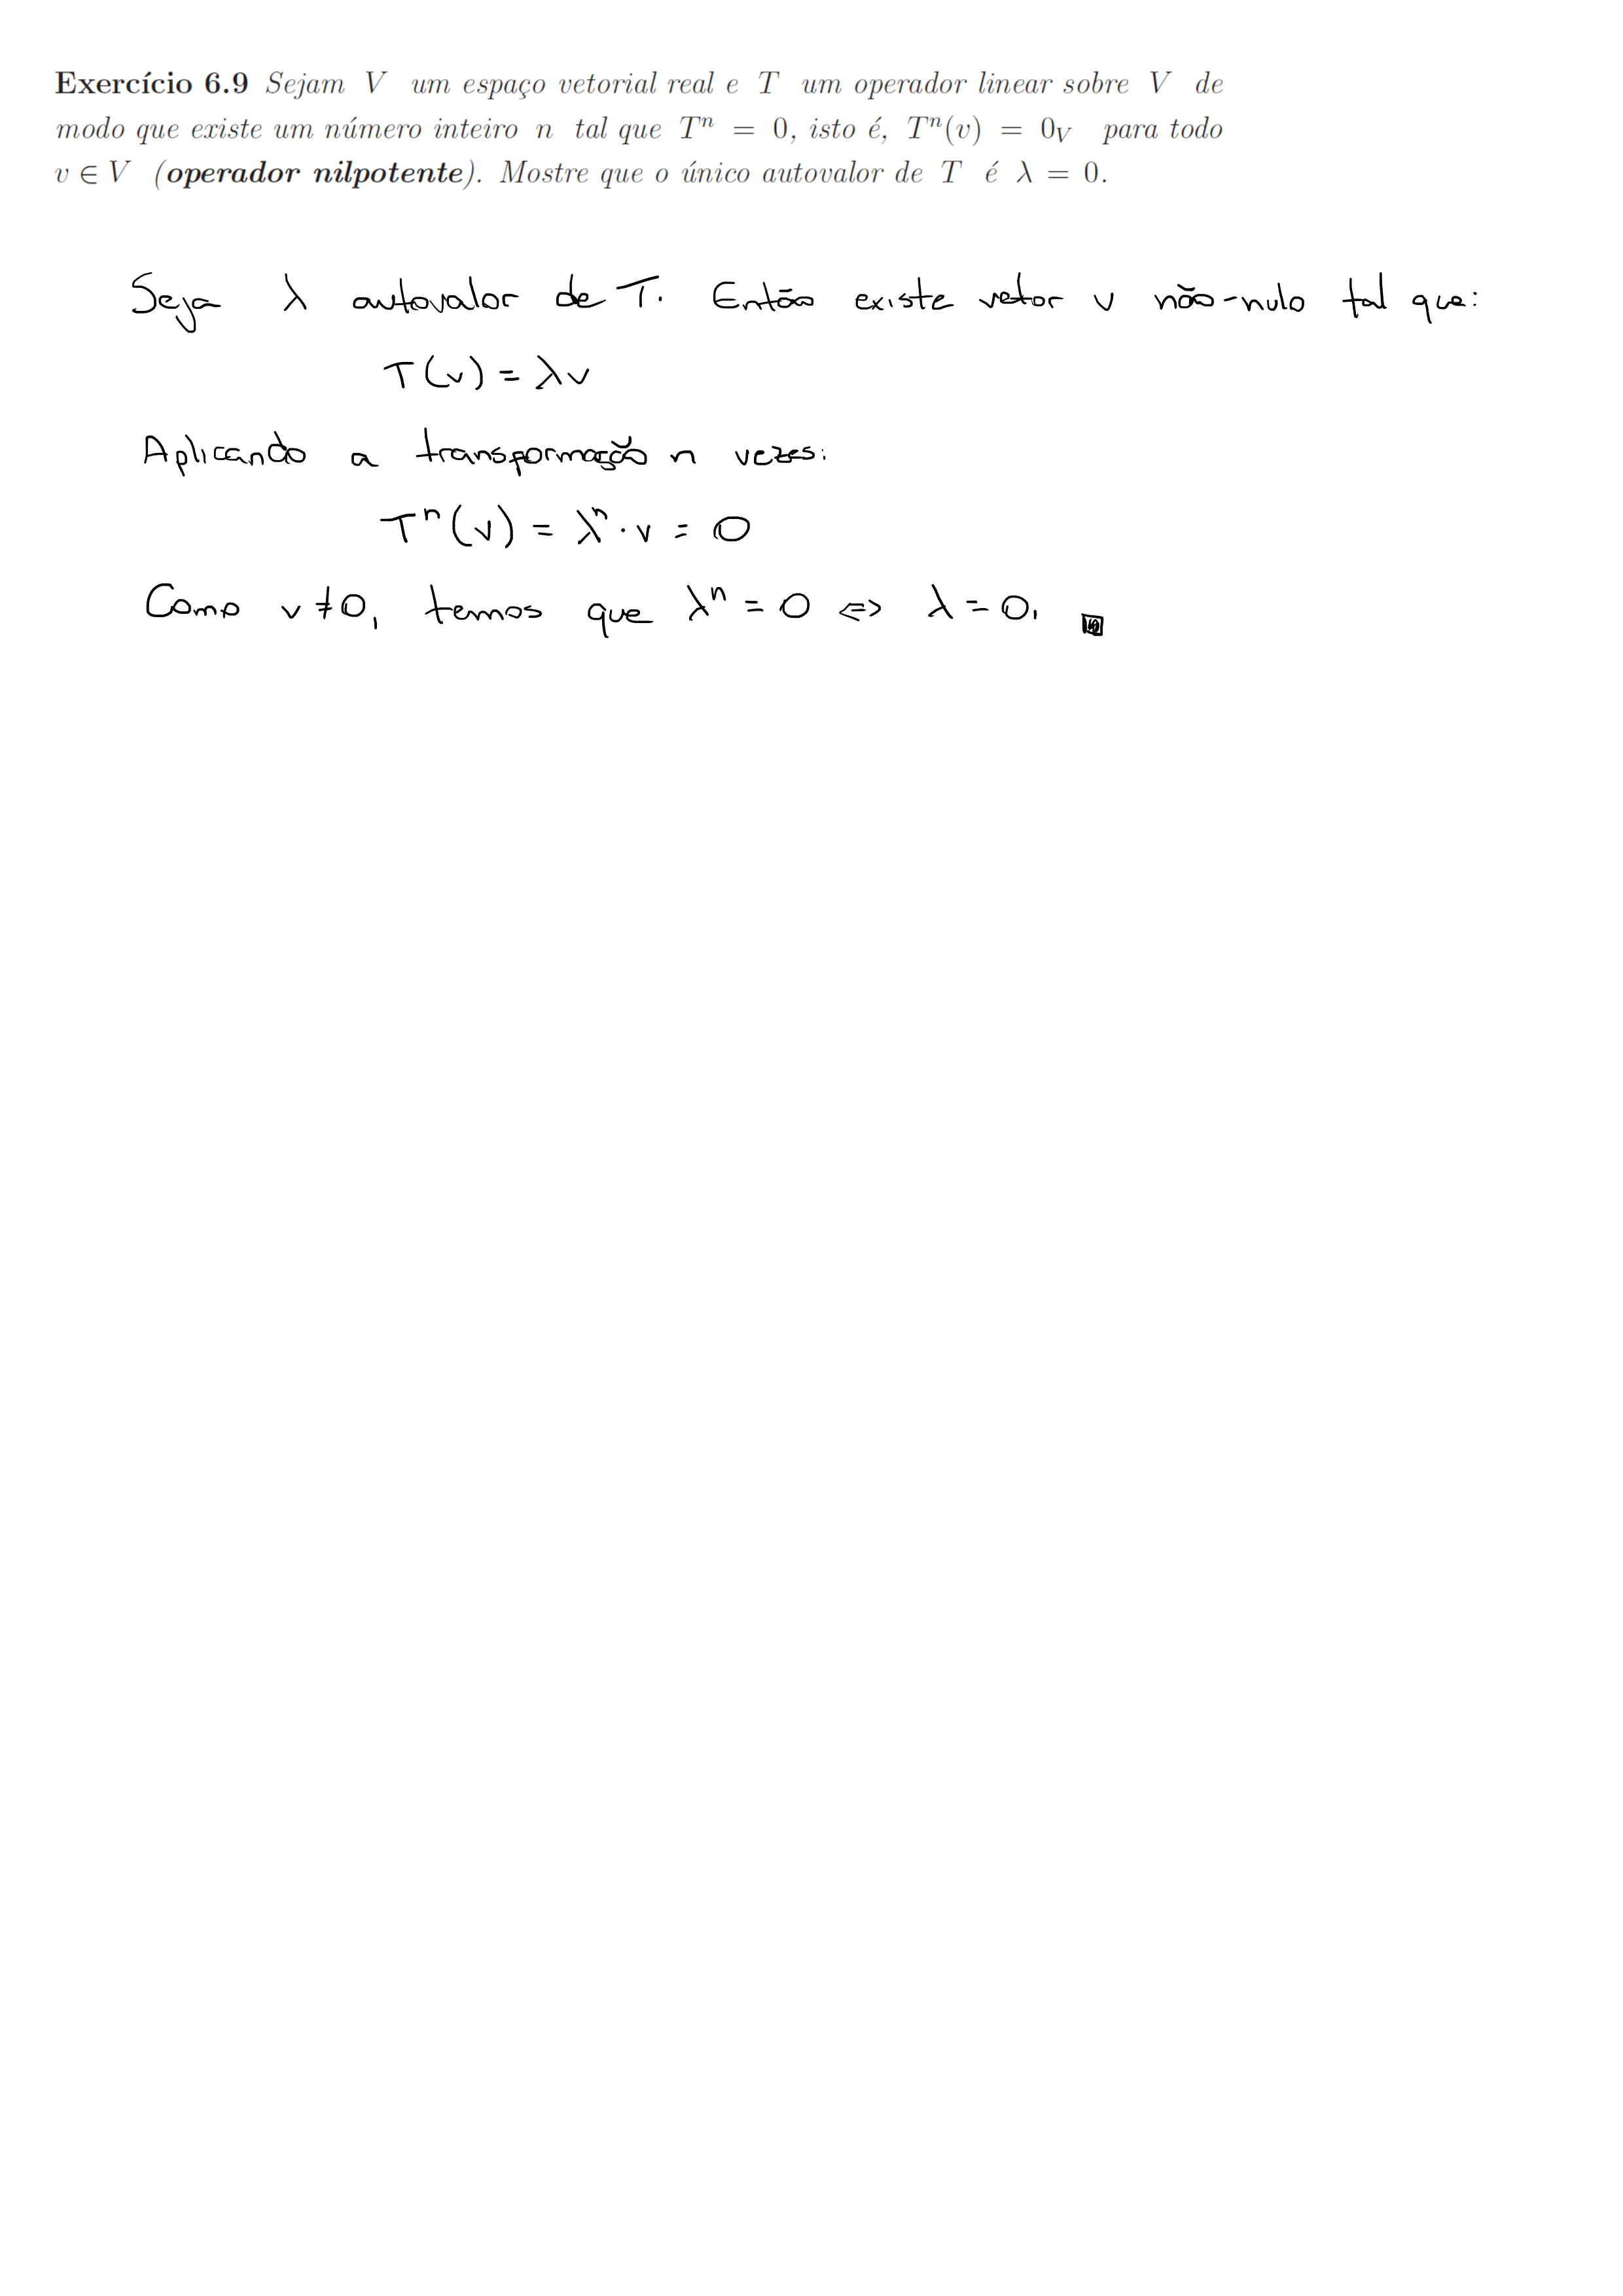 Exercício 6.9 Sejam V um espaço vetorial real e T um operador linear sobre V de
modo que existe um número inteiro n tal que Tⁿ = 0, isto é, Tⁿ(v) = 0_V para todo
v ∈ V (operador nilpotente). Mostre que o único autovalor de T é λ = 0.
Seja λ autovalor de T. Então existe vetor v não-nulo tal que:
T(v) = λv
Aplicando a transformação n vezes:
Tⁿ(v) = λⁿ · v = 0
Como v ≠ 0, temos que λⁿ = 0 ⇔ λ = 0.